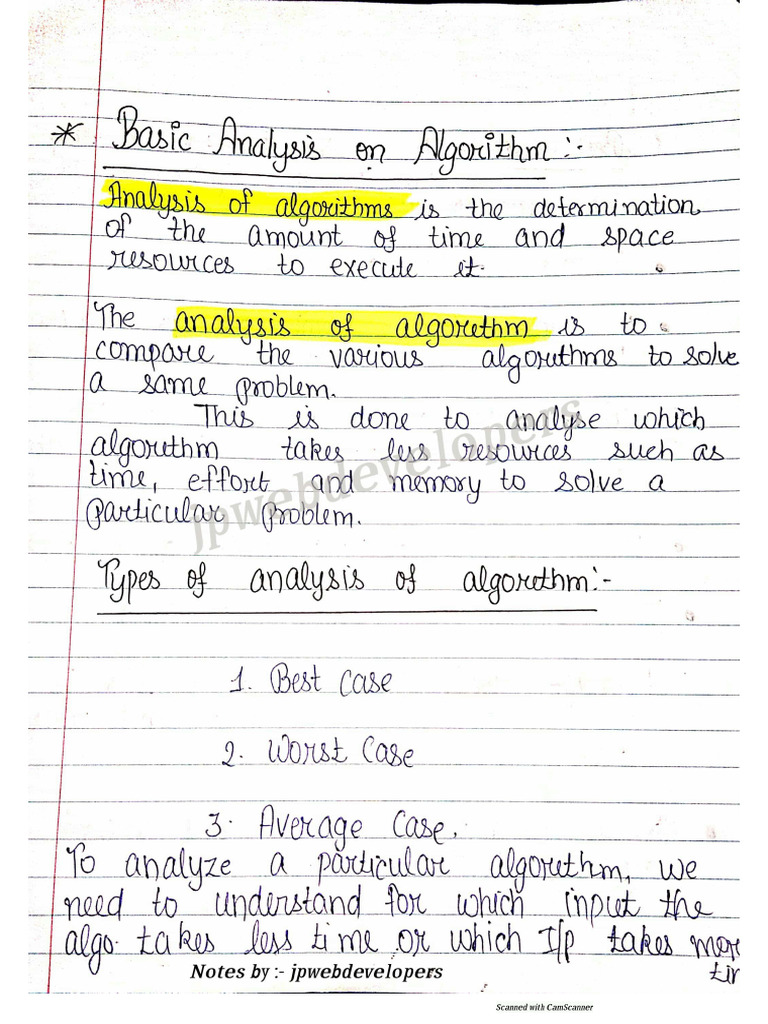 * Basic Analysis on Algorithm :-
Analysis of algorithms is the determination
of the amount of time and space
resources to execute it.
The analysis of algorithm is to
compare the various algorithms to solve
a same problem.
This is done to analyse which
algorithm takes less resources such as
time, effort and memory to solve a
particular problem.
jpwebdevelopers
Types of analysis of algorithm:-
1. Best case
2. Worst Case
3. Average Case.
To analyze a particular algorithm, we
need to understand for which input the
algo. takes less time or which I/p takes more
Notes by :- jpwebdevelopers
Scanned with CamScanner